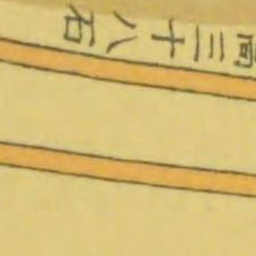 高三十八石